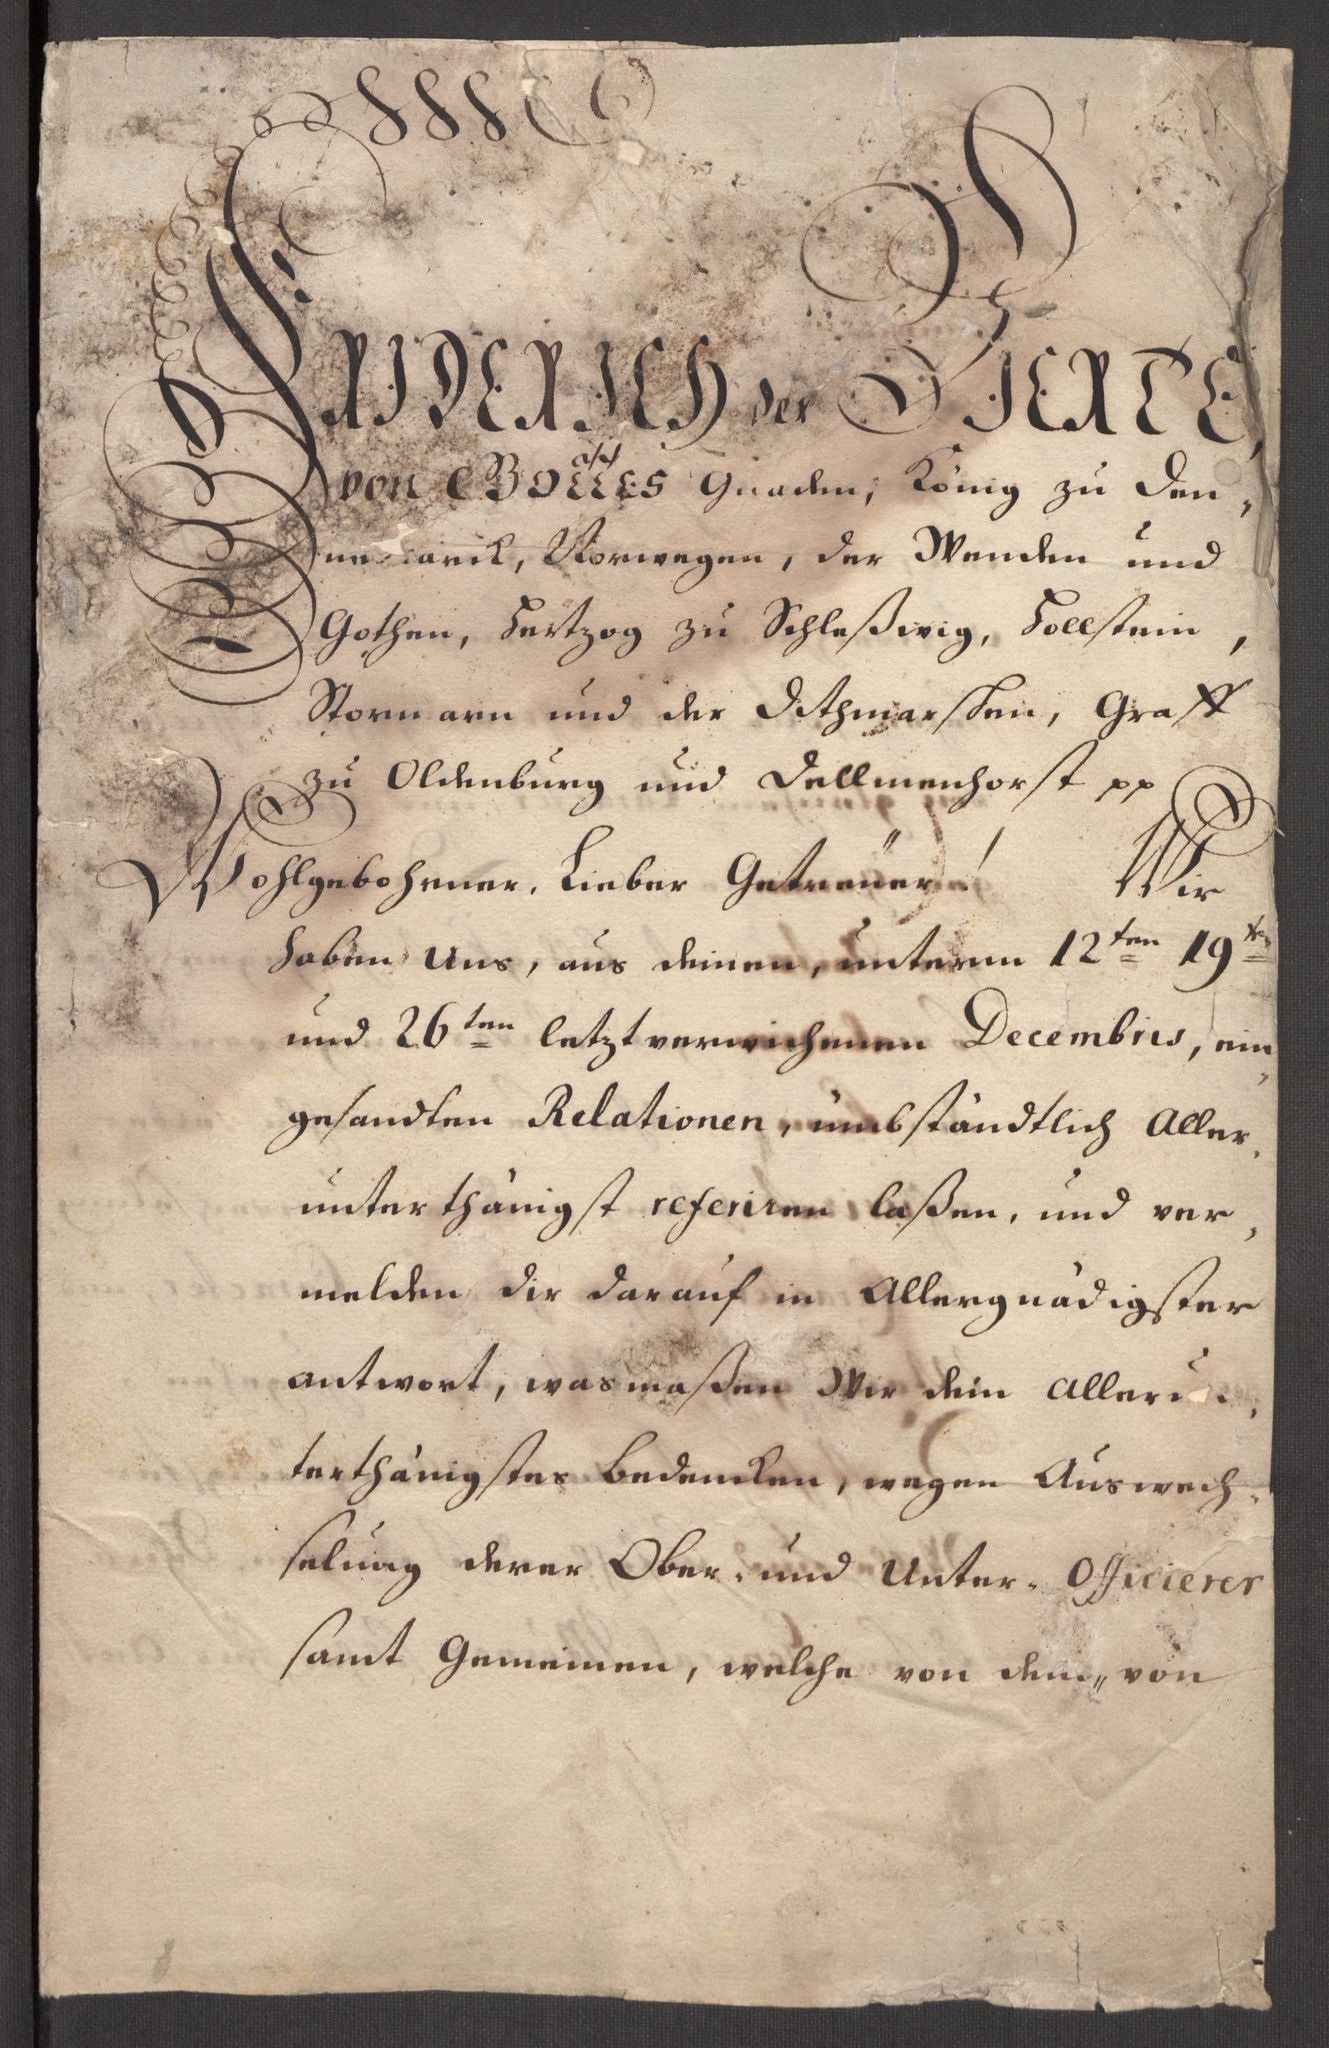 FRIDERICH der VIERTE,
von GOTTES Gnaden, König zu Den-
nemarck, Norwegen, der Wenden und
Gothen, Hertzog zu Schleßwig, Hollstein,
Stormarn und der Dithmarschen, Graff
zu Oldenburg und Dellmenhorst pp
Wohlgebohrner, Lieber Getreüer! Wir
haben Uns, aus deinen, unterm 12ten 19ten
und 26ten letztverwichenen Decembris, ein-
gesandten Relationen, umbständtlich Aller-
unterthänigst referiren laßen, und ver-
melden dir darauf in Allergnädigster
antwort, wasmaßen Wir dein Allerun-
terthänigstes bedencken, wegen Auswech-
selung derer Ober- und Unter-Officierer
samt Gemeinen, welche von dem von